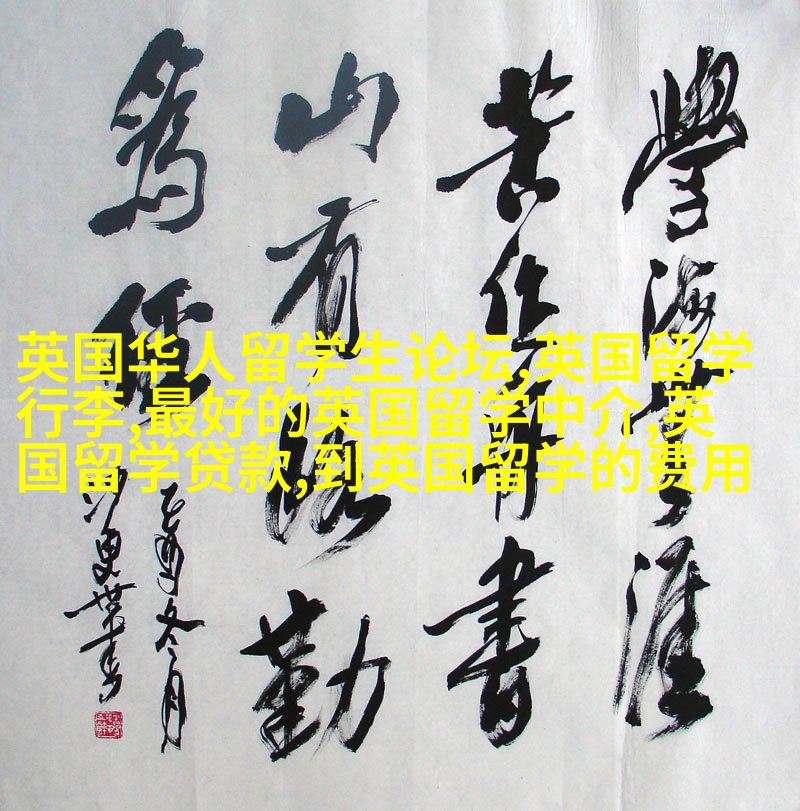 學海無涯
苦作舟書
山有路勤
為徑
乙酉冬月
沙更世書
英国华人留学生论坛,英国留学
行李,最好的英国留学中介,英
国留学贷款,到英国留学的费用